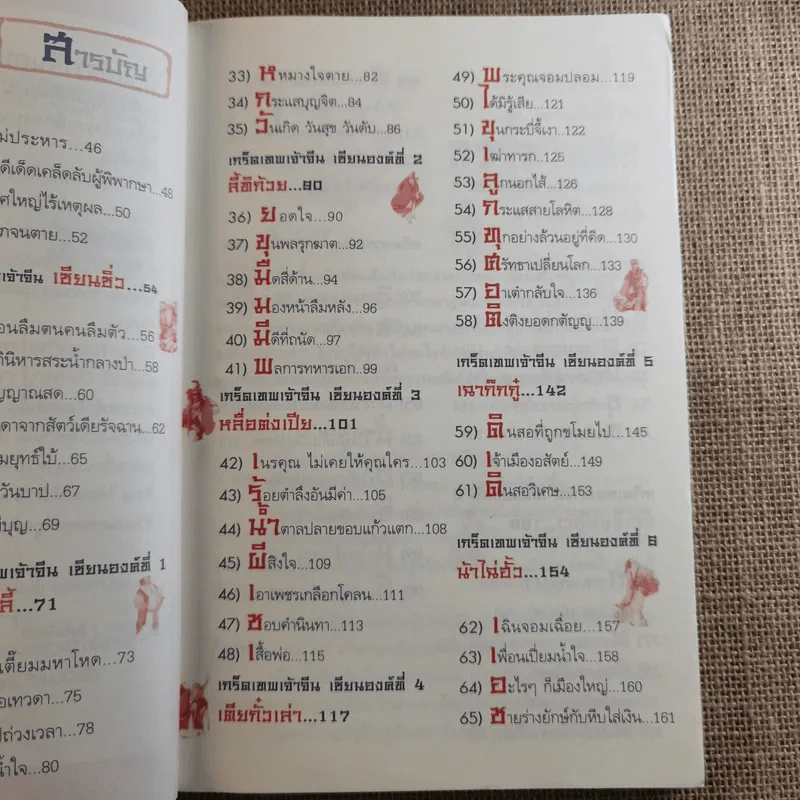 สารบัญ
ม่ประหาร...46
ดีเด็ดเคล็ดลับผู้พิพากษา...48
ศใหญ่ไร้เหตุผล...50
ภจนตาย...52
พเจ้าจีน เซียนซิ่ว...54
อนลืมตนคนลืมตัว...56
ินิหารสระน้ำกลางป่า...58
ญญาณสด...60
ดาจากสัตว์เดียรัจฉาน...62
มยุทธ์ใบ้...65
วันบาป...67
มีบุญ...69
ทพเจ้าจีน เซียนองค์ที่ 1
ลี้...71
เตี๊ยมมหาโหด...73
อเทวดา...75
ปถ่วงเวลา...78
น้ำใจ...80
33) หหมางใจตาย...82
34) กระแสบุญจิต...84
35) วันเกิด วันสุข วันดับ...86
เกร็ดเทพเจ้าจีน เซียนองค์ที่ 2
ลี้ทิก๋วย...90
36) ยอดใจ...90
37) ขุนพลรุกฆาต...92
38) มืดสี่ด้าน...94
39) มองหน้าลืมหลัง...96
40) มีดีที่ถนัด...97
41) พลการทหารเอก...99
เกร็ดเทพเจ้าจีน เซียนองค์ที่ 3
หลื่อต่งเปีย...101
42) เนรคุณ ไม่เคยให้คุณใคร...103
43) ร้อยตำลึงอันมีค่า...105
44) น้ำตาลปลายขอบแก้วแตก...108
45) ผีสิงใจ...109
46) เอาเพชรเกลือกโคลน...111
47) ชอบคำนินทา...113
48) เสื้อพ่อ...115
เกร็ดเทพเจ้าจีน เซียนองค์ที่ 4
เตียกั๋วเล่า...117
49) พระคุณจอมปลอม...119
50) ได้มิรู้เสีย...121
51) ขุนกระบี่จี้เงา...122
52) เฒ่าทารก...125
53) ลูกนอกไส้...126
54) กระแสสายโลหิต...128
55) ทุกอย่างล้วนอยู่ที่คิด...130
56) ศรัทธาเปลี่ยนโลก...133
57) อาเต๋ากลับใจ...136
58) ติงติงยอดกตัญญู...139
เกร็ดเทพเจ้าจีน เซียนองค์ที่ 5
เฉาก๊กกู๋...142
59) ดินสอที่ถูกขโมยไป...145
60) เจ้าเมืองอสัตย์...149
61) ดินสอวิเศษ...153
เกร็ดเทพเจ้าจีน เซียนองค์ที่ 6
น้าไฉ่ฮั้ว...154
62) เฉินจอมเฉื่อย...157
63) เพื่อนเปี่ยมน้ำใจ...158
64) อะไรๆ ก็เมืองใหญ่...160
65) ชายร่างยักษ์กับหีบใส่เงิน...161